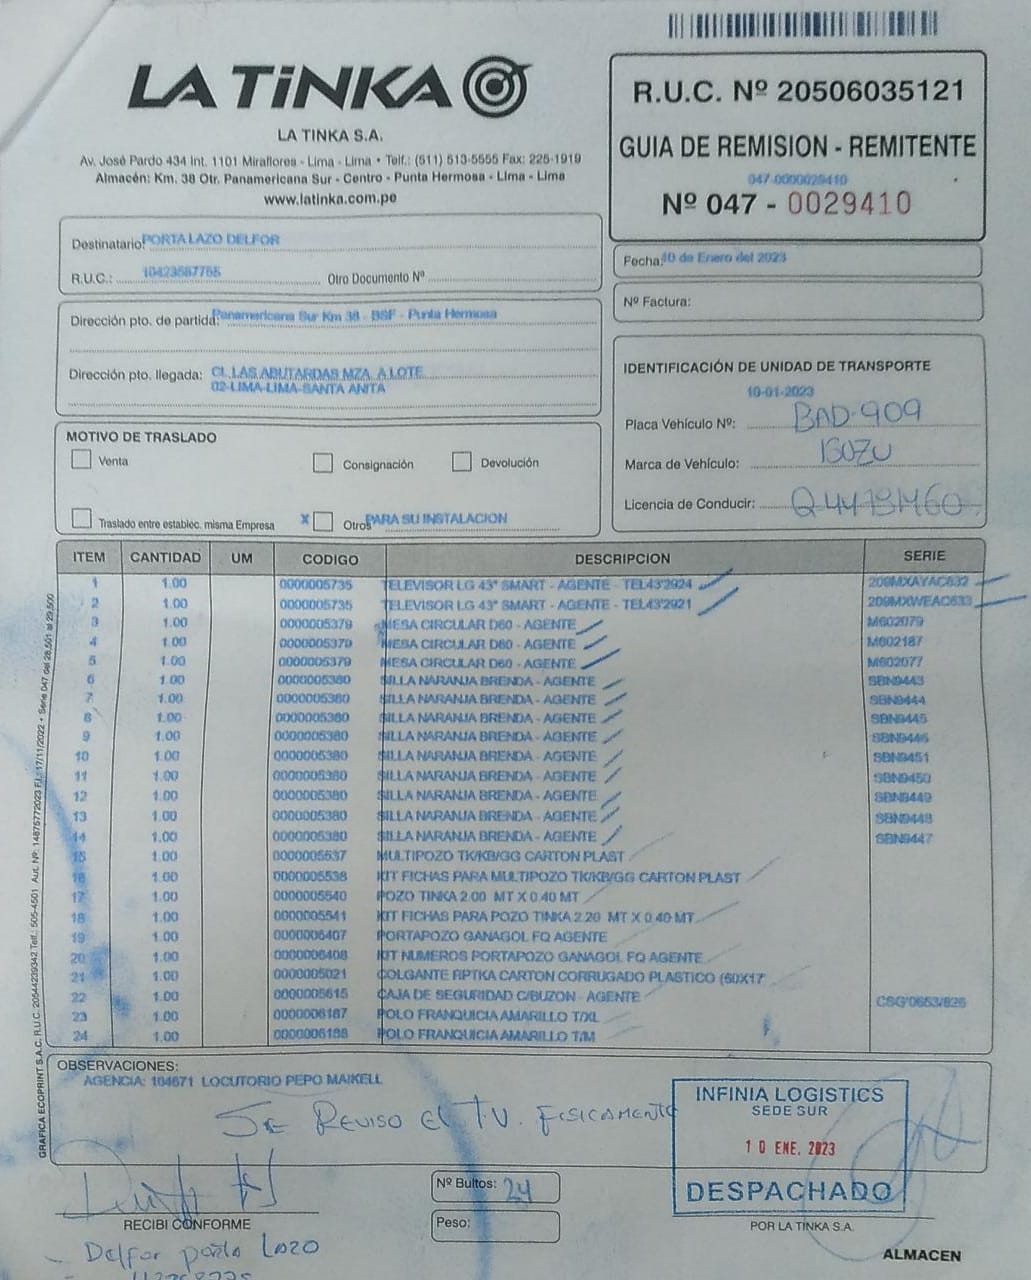 LA TiNKA
LA TINKA S.A.
Av. José Pardo 434 Int. 1101 Miraflores - Lima - Lima • Telf.: (511) 513-5555 Fax: 225-1919
Almacén: Km. 38 Otr. Panamericana Sur - Centro - Punta Hermosa - Lima - Lima
www.latinka.com.pe
R.U.C. Nº 20506035121
GUIA DE REMISION - REMITENTE
047-0000029410
Nº 047 - 0029410
Destinatario: PORTA LAZO DELFOR
R.U.C.: Otro Documento Nº
Fecha: 10 de Enero del 2023
Nº Factura:
Dirección pto. de partida: Panamericana Sur Km 38 - BSF - Punta Hermosa
Dirección pto. llegada: CL LAS ABUTARDAS MZA. A LOTE
02-LIMA-LIMA-SANTA ANITA
IDENTIFICACIÓN DE UNIDAD DE TRANSPORTE
10-01-2023
Placa Vehículo Nº: BAD-909
Marca de Vehículo: ISUZU
Licencia de Conducir:
MOTIVO DE TRASLADO
Venta Consignación Devolución
Traslado entre establec. misma Empresa X Otros PARA SU INSTALACION
ITEM CANTIDAD UM CODIGO DESCRIPCION SERIE
1 1.00 0000005735 TELEVISOR LG 43" SMART - AGENTE - TEL43'2924
2 1.00 0000005735 TELEVISOR LG 43" SMART - AGENTE - TEL43'2921
3 1.00 0000005379 MESA CIRCULAR D60 - AGENTE M602079
4 1.00 0000005379 MESA CIRCULAR D60 - AGENTE M602187
5 1.00 0000005379 MESA CIRCULAR D60 - AGENTE M602077
6 1.00 0000005380 SILLA NARANJA BRENDA - AGENTE SBN9443
7 1.00 0000005380 SILLA NARANJA BRENDA - AGENTE SBN9444
8 1.00 0000005380 SILLA NARANJA BRENDA - AGENTE SBN9445
9 1.00 0000005380 SILLA NARANJA BRENDA - AGENTE SBN9446
10 1.00 0000005380 SILLA NARANJA BRENDA - AGENTE SBN9451
11 1.00 0000005380 SILLA NARANJA BRENDA - AGENTE SBN9450
12 1.00 0000005380 SILLA NARANJA BRENDA - AGENTE SBN9449
13 1.00 0000005380 SILLA NARANJA BRENDA - AGENTE SBN9448
14 1.00 0000005380 SILLA NARANJA BRENDA - AGENTE SBN9447
15 1.00 0000005537 MULTIPOZO TK/KB/GG CARTON PLAST
16 1.00 0000005538 KIT FICHAS PARA MULTIPOZO TK/KB/GG CARTON PLAST
17 1.00 0000005540 POZO TINKA 2.00 MT X 0.40 MT
18 1.00 0000005541 KIT FICHAS PARA POZO TINKA 2.20 MT X 0.40 MT
19 1.00 0000006407 PORTAPOZO GANAGOL FQ AGENTE
20 1.00 0000006408 KIT NUMEROS PORTAPOZO GANAGOL FQ AGENTE
21 1.00 0000005021 COLGANTE RPTIKA CARTON CORRUGADO PLASTICO (60X17
22 1.00 0000005615 CAJA DE SEGURIDAD C/BUZON - AGENTE
23 1.00 0000006187 POLO FRANQUICIA AMARILLO T/XL
24 1.00 0000006188 POLO FRANQUICIA AMARILLO T/M
OBSERVACIONES:
AGENCIA: 104671 LOCUTORIO PEPO MAIKELL
SE REVISO EL T.V. FISICAMENTE
INFINIA LOGISTICS
SEDE SUR
10 ENE. 2023
DESPACHADO
Nº Bultos: 24
Peso:
RECIBI CONFORME
POR LA TINKA S.A.
Delfor porta Lazo
ALMACEN